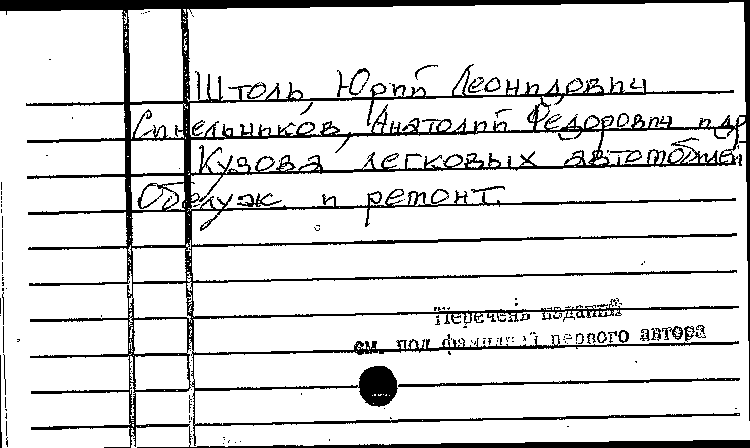 Штоль, Юрий Леонидович
Синельников, Анатолий Федорович и др
Кузова легковых автомобилей
Обслуж. и ремонт.
Перечень изданий
см. под фамилией первого автора